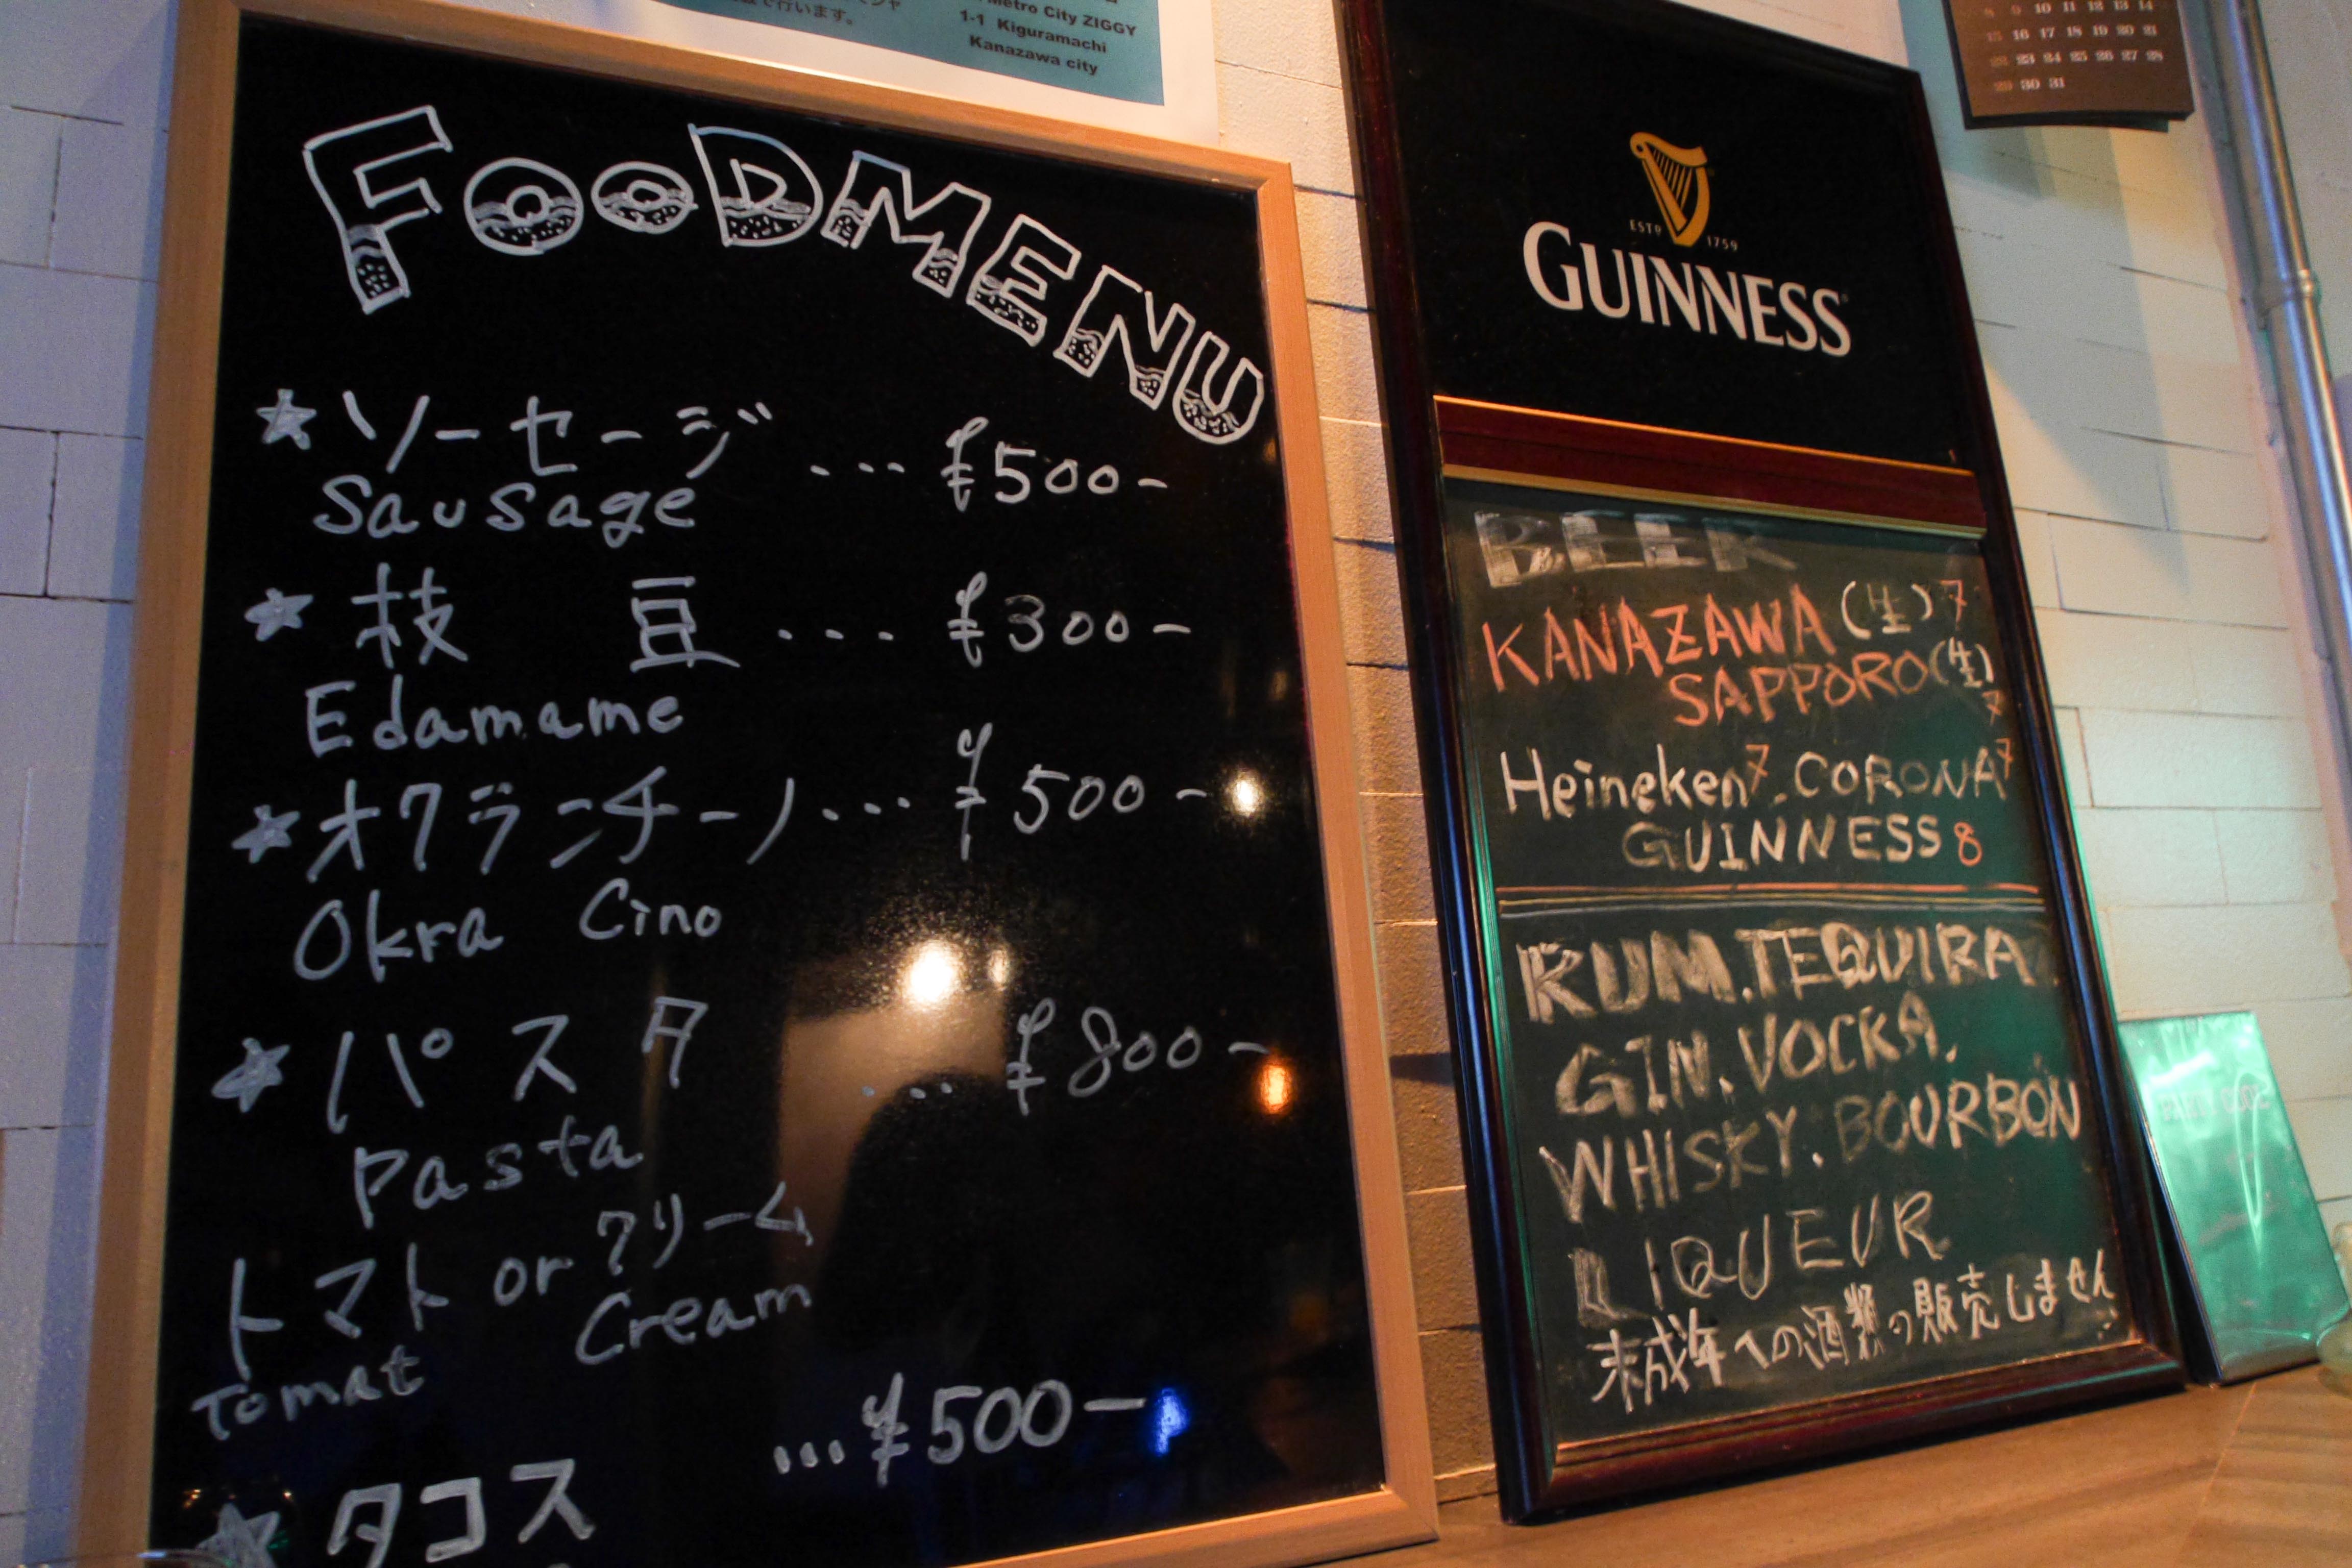 で行います。
Metro City ZIGGY
1-1 Kiguramachi
Kanazawa city
FOOD MENU
★ ソーセージ ... ¥500-
Sausage
★ 枝 豆 .... ¥300-
Edamame
★ オクランチーノ ... ¥500-
Okra Cino
★ パスタ ... ¥800-
Pasta
トマト or クリーム
Tomat Cream
★ タコス ...¥500-
ESTD 1759
GUINNESS
BEER
KANAZAWA (生) 7
SAPPORO (生) 7
Heineken 7. CORONA 7
GUINNESS 8
RUM. TEQUIRA.
GIN. VOCKA.
WHISKY. BOURBON
LIQUEUR
未成年への酒類の販売しません
8 9 10 11 12 13 14
15 16 17 18 19 20 21
22 23 24 25 26 27 28
29 30 31